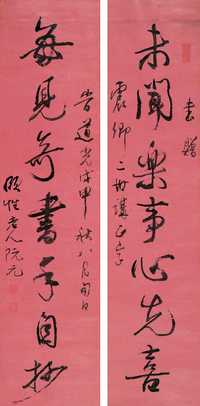 書贈
未聞樂事心先喜
震卿二兄謀正字
每見奇書手自抄
岢道光戊申秋八月旬日
頤性老人阮元